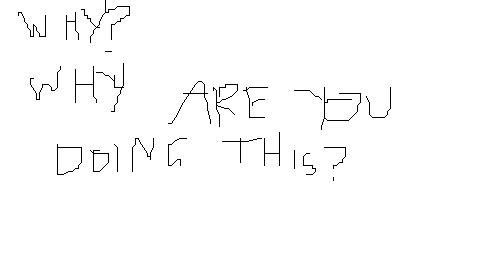 WHY?
WHY ARE YOU
DOING THIS?